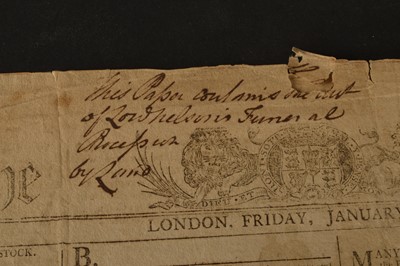 This Paper contains
of Lord Nelson's Funeral
Procession
by Land
DIEU ET
LONDON. FRIDAY, JANUARY
STOCK.
B.
MANY